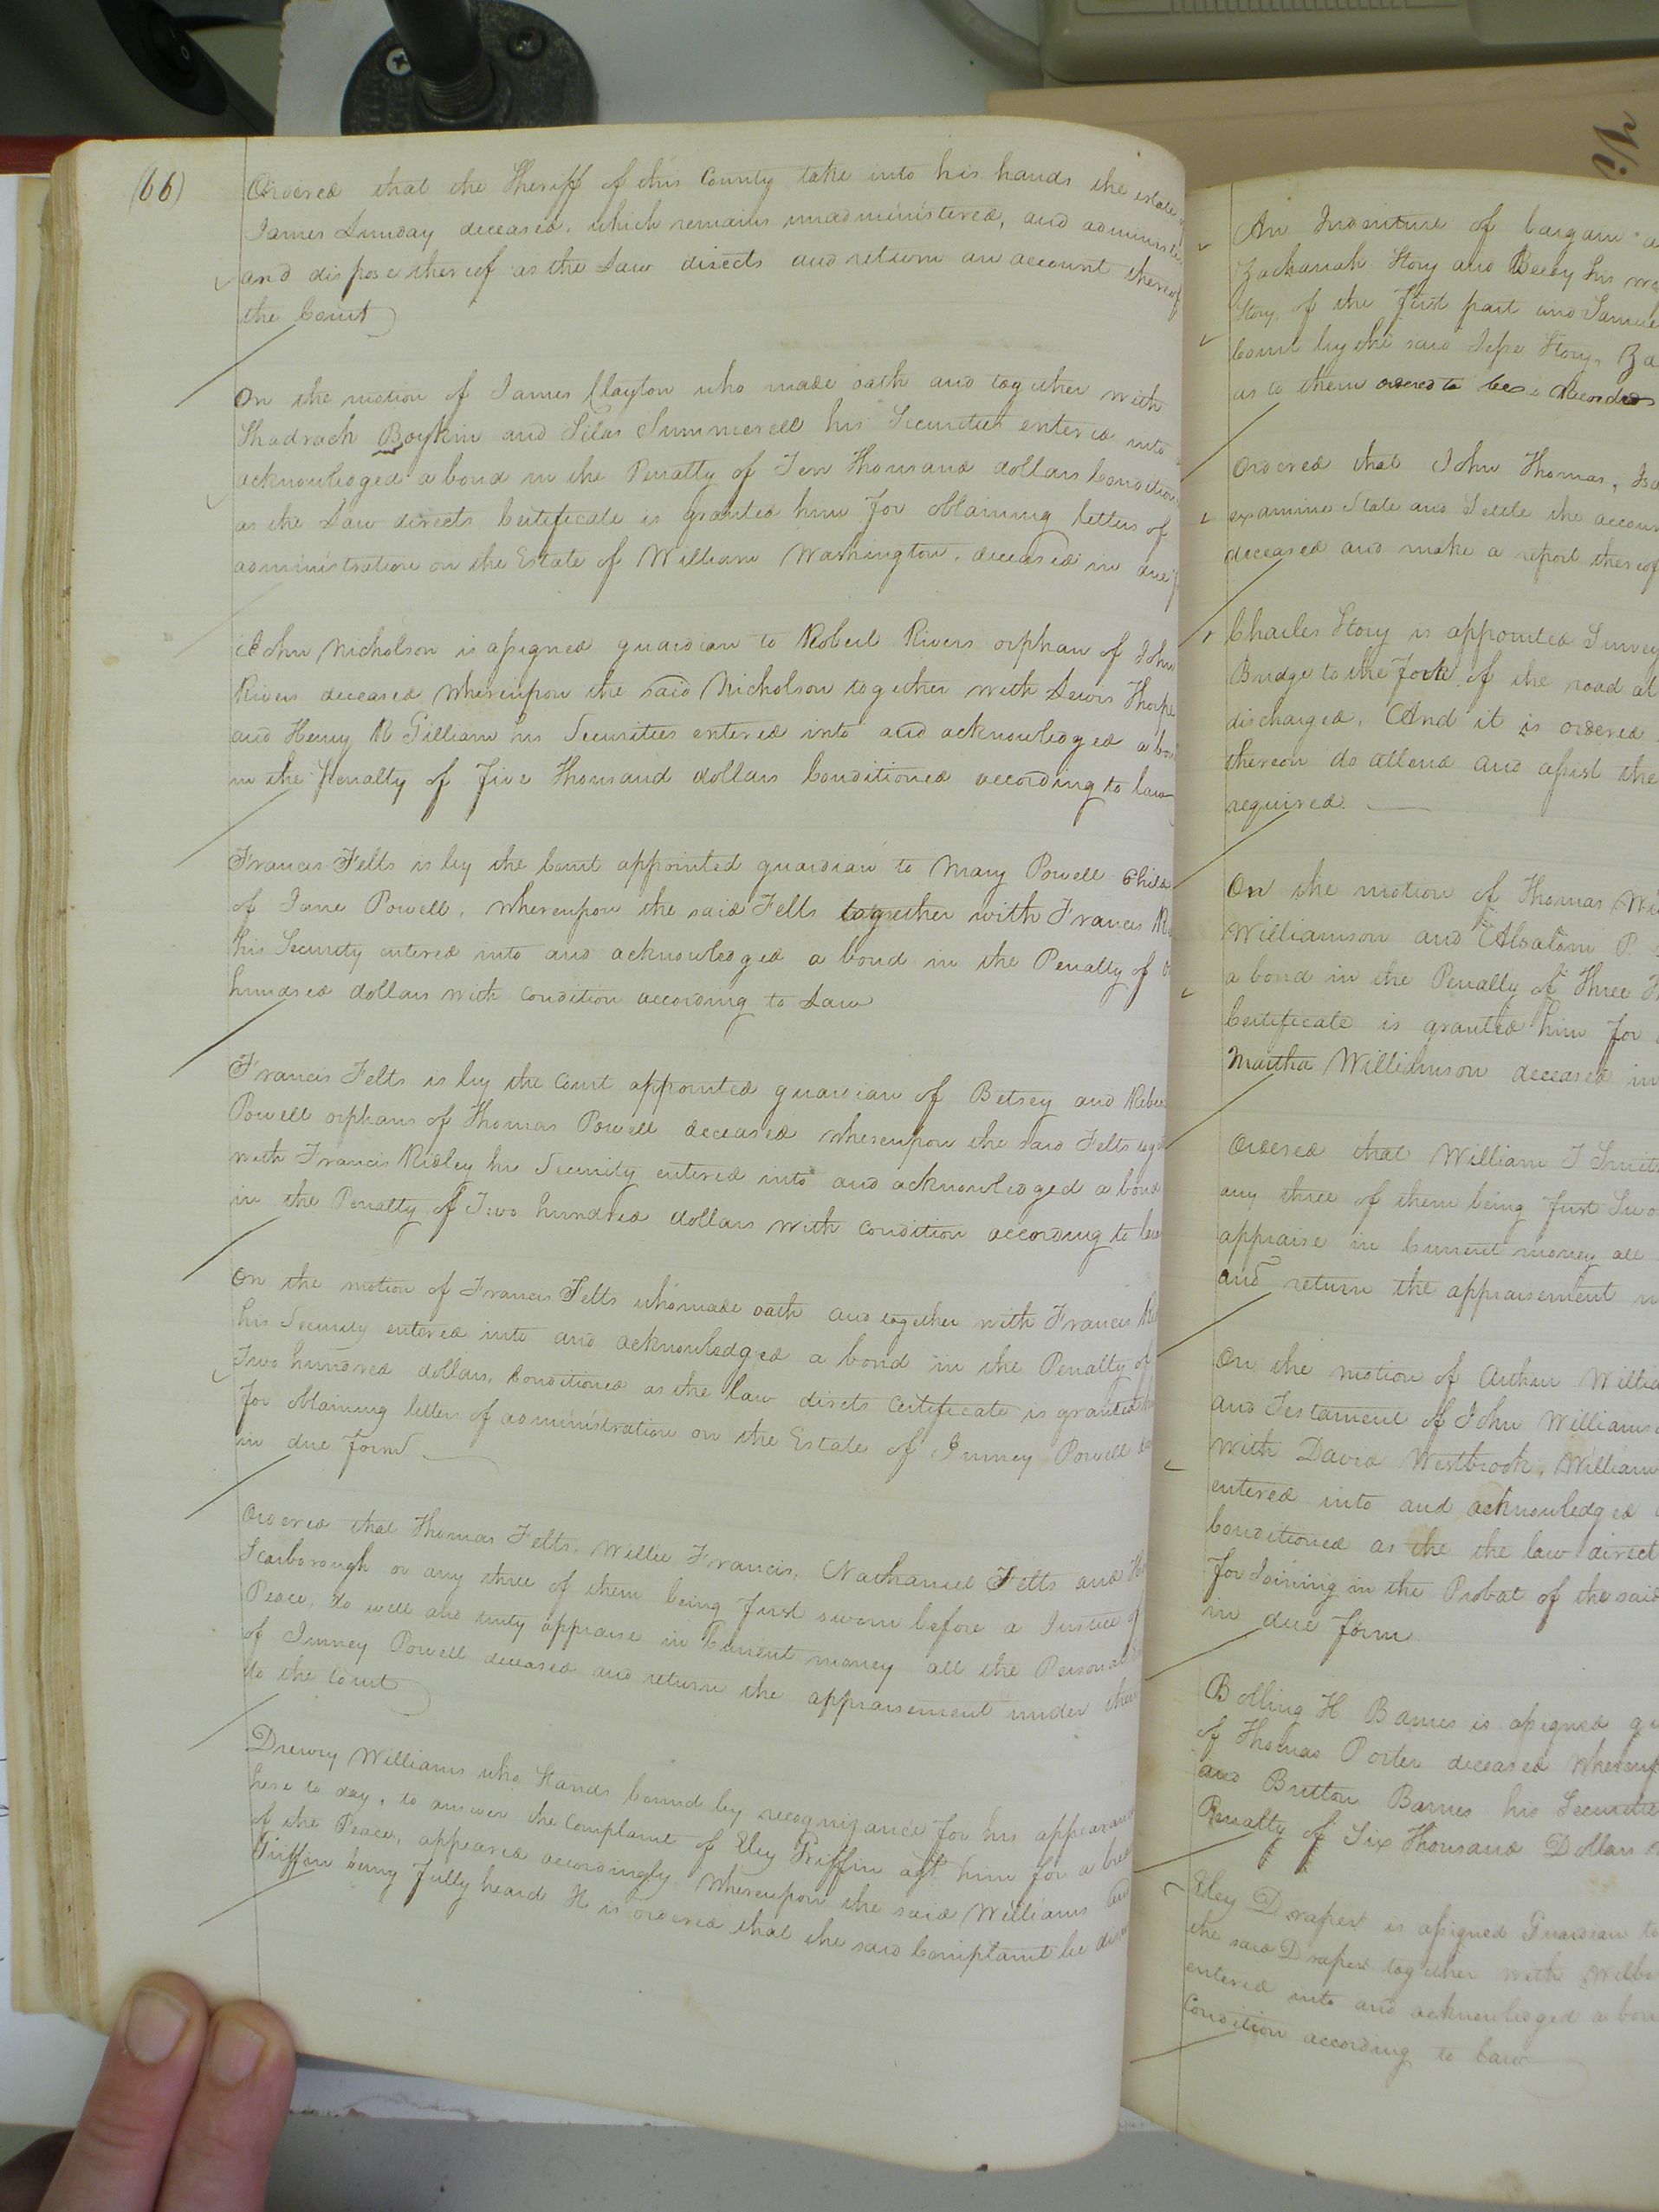 (66)
Ordered that the Sheriff of this County take into his hands the estate
James Lunday deceased. which remains unadministered, and administer
and dispose thereof as the Law directs and return an account thereof
the Court
On the motion of James Clayton who made oath and together with
Shadrach Boykin and Silas Summerell his Securities entered into
acknowledged a bond in the Penalty of Ten Thousand dollars Condition
as the Law directs Certificate is granted him for obtaining letters of
administration on the Estate of William Washington, deceased in due
John Nicholson is assigned guardian to Robert Rivers orphan of John
Rivers deceased, Whereupon the said Nicholson together with Lewis Thorpe
and Henry R Gilliam his Securities entered into and acknowledged a bon
in the penalty of Five Thousand dollars Conditioned according to law
Francis Felts is by the Court appointed guardian to Mary Powell Child
of Jane Powell, whereupon the said Felts together with Francis
his Security entered into and acknowledged a bond in the Penalty of
hundred dollars with Condition according to Law
Francis Felts is by the Court appointed guardian of Betsey and Rebec
Powell orphans of Thomas Powell deceased whereupon the said Felts tog
with Francis Ridley his Security entered into and acknowledged a bond
in the Penalty of Two hundred dollars with condition according to law
On the motion of Francis Felts who made oath and together with Francis
his Security entered into and acknowledged a bond in the Penalty of
Two hundred dollars, Conditioned as the law directs Certificate is granted
for obtaining letters of administration on the Estate of Jinney Powell
in due form
Ordered that Thomas Felts, Willie Francis, Nathaniel Felts and
Scarborough or any three of them being first sworn before a Justice of
Peace, do well and truly appraise in Current money all the Personal
of Jinney Powell deceased and return the appraisement under their
to the Court
Drewry Williams who Stands bound by recognizance for his appearance
here to day, to answer the Complaint of Eley Griffin agt him for a brea
of the Peace, appeared accordingly. Whereupon the said Williams and
Griffin being fully heard It is ordered that the said Complaint be
An Indenture of bargain a
Zachariah Story and Beedy his
Story, of the first part and Samue
Court by the said Jesse Story, Za
as to them ordered to be Recorded
Ordered that John Thomas,
examine State and Settle the accoun
deceased and make a report thereof
Charles Story is appointed Survey
Bridge to the Fork of the road at
discharged. And it is ordered
thereon do attend and assist the
required.
On the motion of Thomas Wi
Williamson and Absalom P.
a bond in the Penalty of Three
Certificate is granted him for
Martha Williamson deceased in
Ordered that William J Smith
any three of them being first Swo
appraise in Current money all
and return the appraisement
On the motion of Arthur Willia
and Testament of John Williams
with David Westbrook, William
entered into and acknowledged
Conditioned as the the law direct
for Joining in the Probat of the said
in due form
Bolling H Barnes is assigned gu
of Thomas Porter deceased Whereup
and Britton Barnes his Securitie
Penalty of Six Thousand Dollars
Eley Draper is assigned Guardian to
the said Draper together with
entered into and acknowledged a bon
Condition according to Law